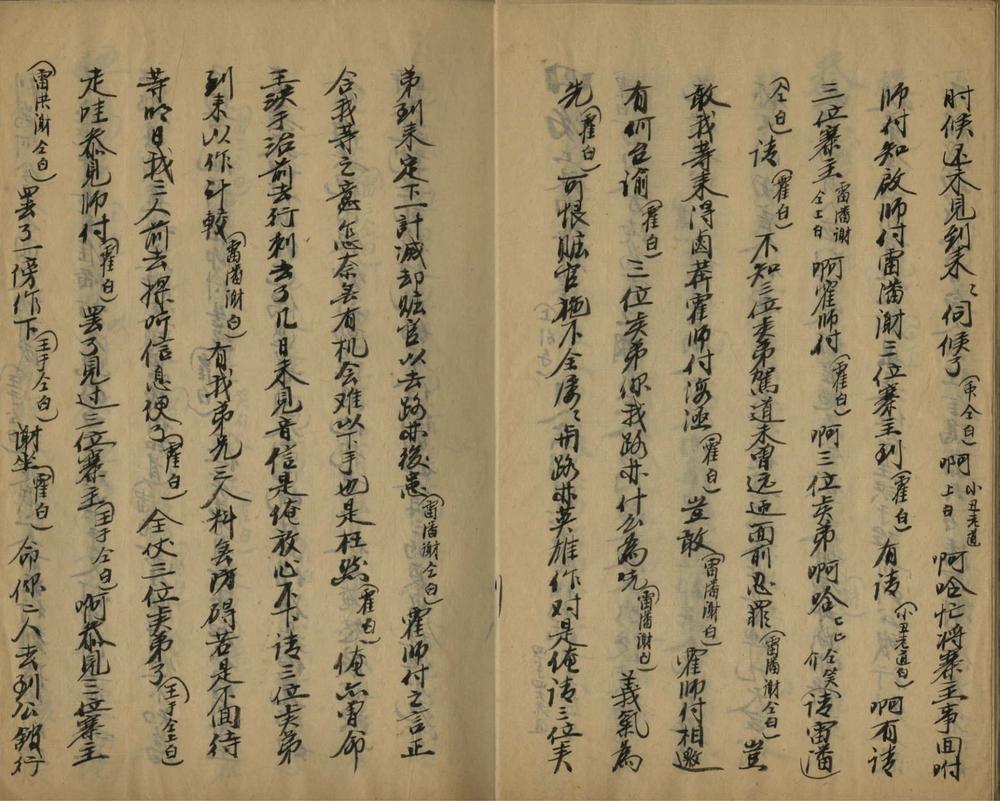 时候还未见到来〻伺候了(朱仝白)啊小丑老道上白啊哈忙将寨主事回咐
师付知啟师付雷潘谢三位寨主到(霍白)有请(小丑老道白)啊有请
三位寨主雷潘谢仝上白啊霍师付(霍白)啊三位贤弟啊哈〻〻仝笑介(请雷潘
仝白)请(霍白)不知三位贤弟驾道未曾远迎面前恕罪(雷潘谢仝白)豈
敢我等来得鹵莽霍师付海涵(霍白)豈敢(雷潘谢白)霍师付相邀
有何台谕(霍白)三位贤弟你我路亦什么為先(雷潘谢白)義氣為
先(霍白)可恨贓官施不全屡〻与路亦英雄作对是俺请三位贤
弟到来定下一計滅却贓官以去路亦後患(雷潘谢仝白)霍师付之言正
合我等之意怎奈無有机会难以下手也是枉然(霍白)俺亦曾命
王于治前去行刺去了几日未見音信是俺放心不下请三位贤弟
到来以作計較(雷潘谢白)有我弟兄三人料無防碍若是不回待
等明日我三人前去探听信息便了(霍白)全仗三位贤弟了(王于仝白)
走哇叅見师付(霍白)罢了見过三位寨主(王于仝白)啊叅見三位寨主
(雷洪谢仝白)罢了一傍作下(王于仝白)谢坐(霍白)命你二人去到公館行